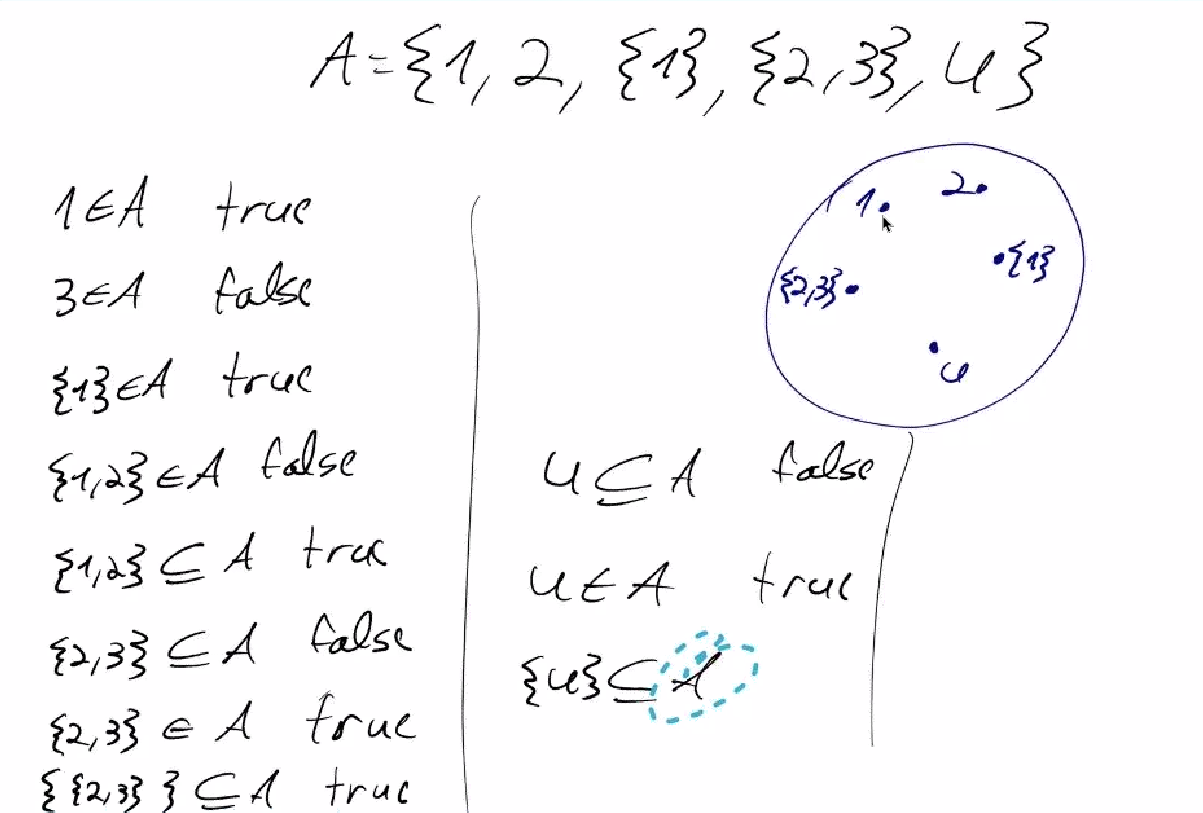 A={1, 2, {1}, {2,3}, u}
1∈A true
3∈A false
{1}∈A true
{1,2}∈A false
{1,2}⊆A true
{2,3}⊆A false
{2,3}∈A true
{{2,3}}⊆A true
1
2
{1}
{2,3}
u
u⊆A false
u∈A true
{u}⊆A